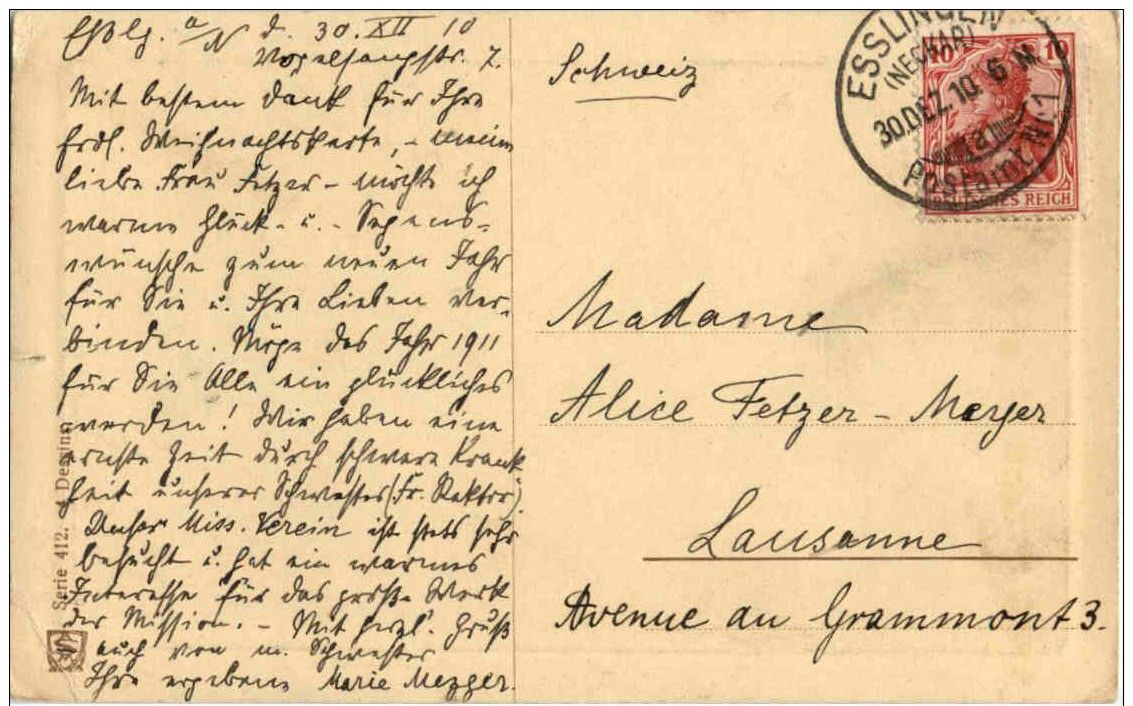 Eßlg. a/N d. 30. XII 10
Vogelsangstr. 7.
Mit bestem Dank für Ihre
frdl. Weihnachtskarte, – meine
liebe Frau Fetzer – möchte ich
warme Glück- u. - Segens-
wünsche zum neuen Jahr
für Sie u. Ihre Lieben ver-
binden. Möge das Jahr 1911
für Sie Alle ein glückliches
werden! Wir haben eine
ernste Zeit durch schwere Krank
heit unserer Schwester (Fr. Rektor)
Unser Miss. Verein ist stets sehr
besucht u. hat ein warmes
Interesse für das große Werk
der Mission. – Mit herzl. Gruß
auch von m. Schwester
Ihre ergebene Marie Mezger.
Serie 412. 4 Dessins
Schweiz
ESSLINGEN
(NECKAR)
30.DEZ.10. 6 N.
Postamt Nr. 1
10 10
DEUTSCHES REICH
Madame
Alice Fetzer - Meyer
Lausanne
Avenue du Grammont 3.